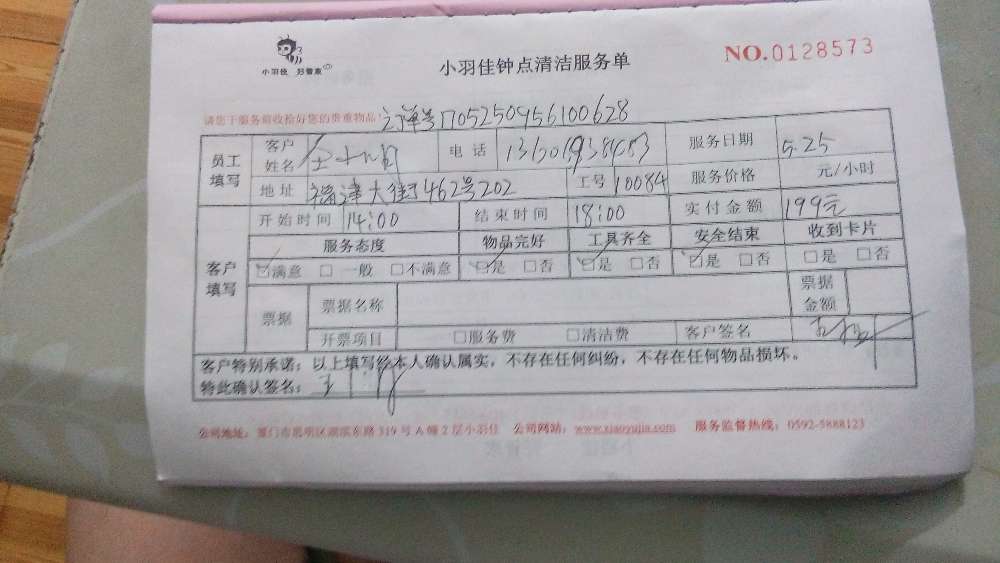 小羽佳 好管家
小羽佳钟点清洁服务单
NO.0128573
请您于服务前收拾好您的贵重物品! 订单号1705250956100628
员工填写 客户姓名 电话 服务日期 5.25
地址 福津大街462号202 工号 10084 服务价格 元/小时
客户填写 开始时间 14:00 结束时间 18:00 实付金额 199元
服务态度 物品完好 工具齐全 安全结束 收到卡片
☑满意 □一般 □不满意 ☑是 □否 ☑是 □否 ☑是 □否 □是 □否
票据 票据名称 票据金额
开票项目 □服务费 □清洁费 客户签名
客户特别承诺：以上填写经本人确认属实，不存在任何纠纷，不存在任何物品损坏。
特此确认签名：
公司地址：厦门市思明区湖滨东路319号A幢2层小羽佳 公司网站：www.xiaoyujia.com 服务监督热线：0592-5888123